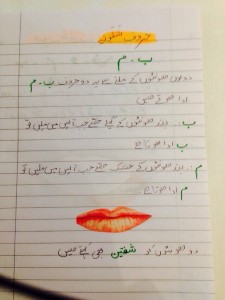 حروف شفوی
ب - م
دونوں ہونٹوں کے ملنے سے یہ دو حروف ب - م
ادا ہوتے ہیں
ب : دونوں ہونٹوں کے گیلے حصے جب آپس میں ملیں تو
ب ادا ہوتا ہے
م : دونوں ہونٹوں کے خشک حصے جب آپس میں ملیں تو
م ادا ہوتا ہے
دو ہونٹوں کو شفتین بھی کہتے ہیں